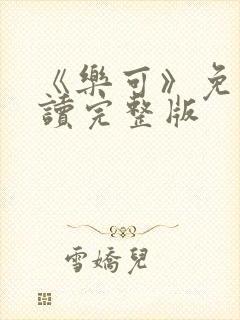 《樂可》免
讀完整版
雪嬌兒